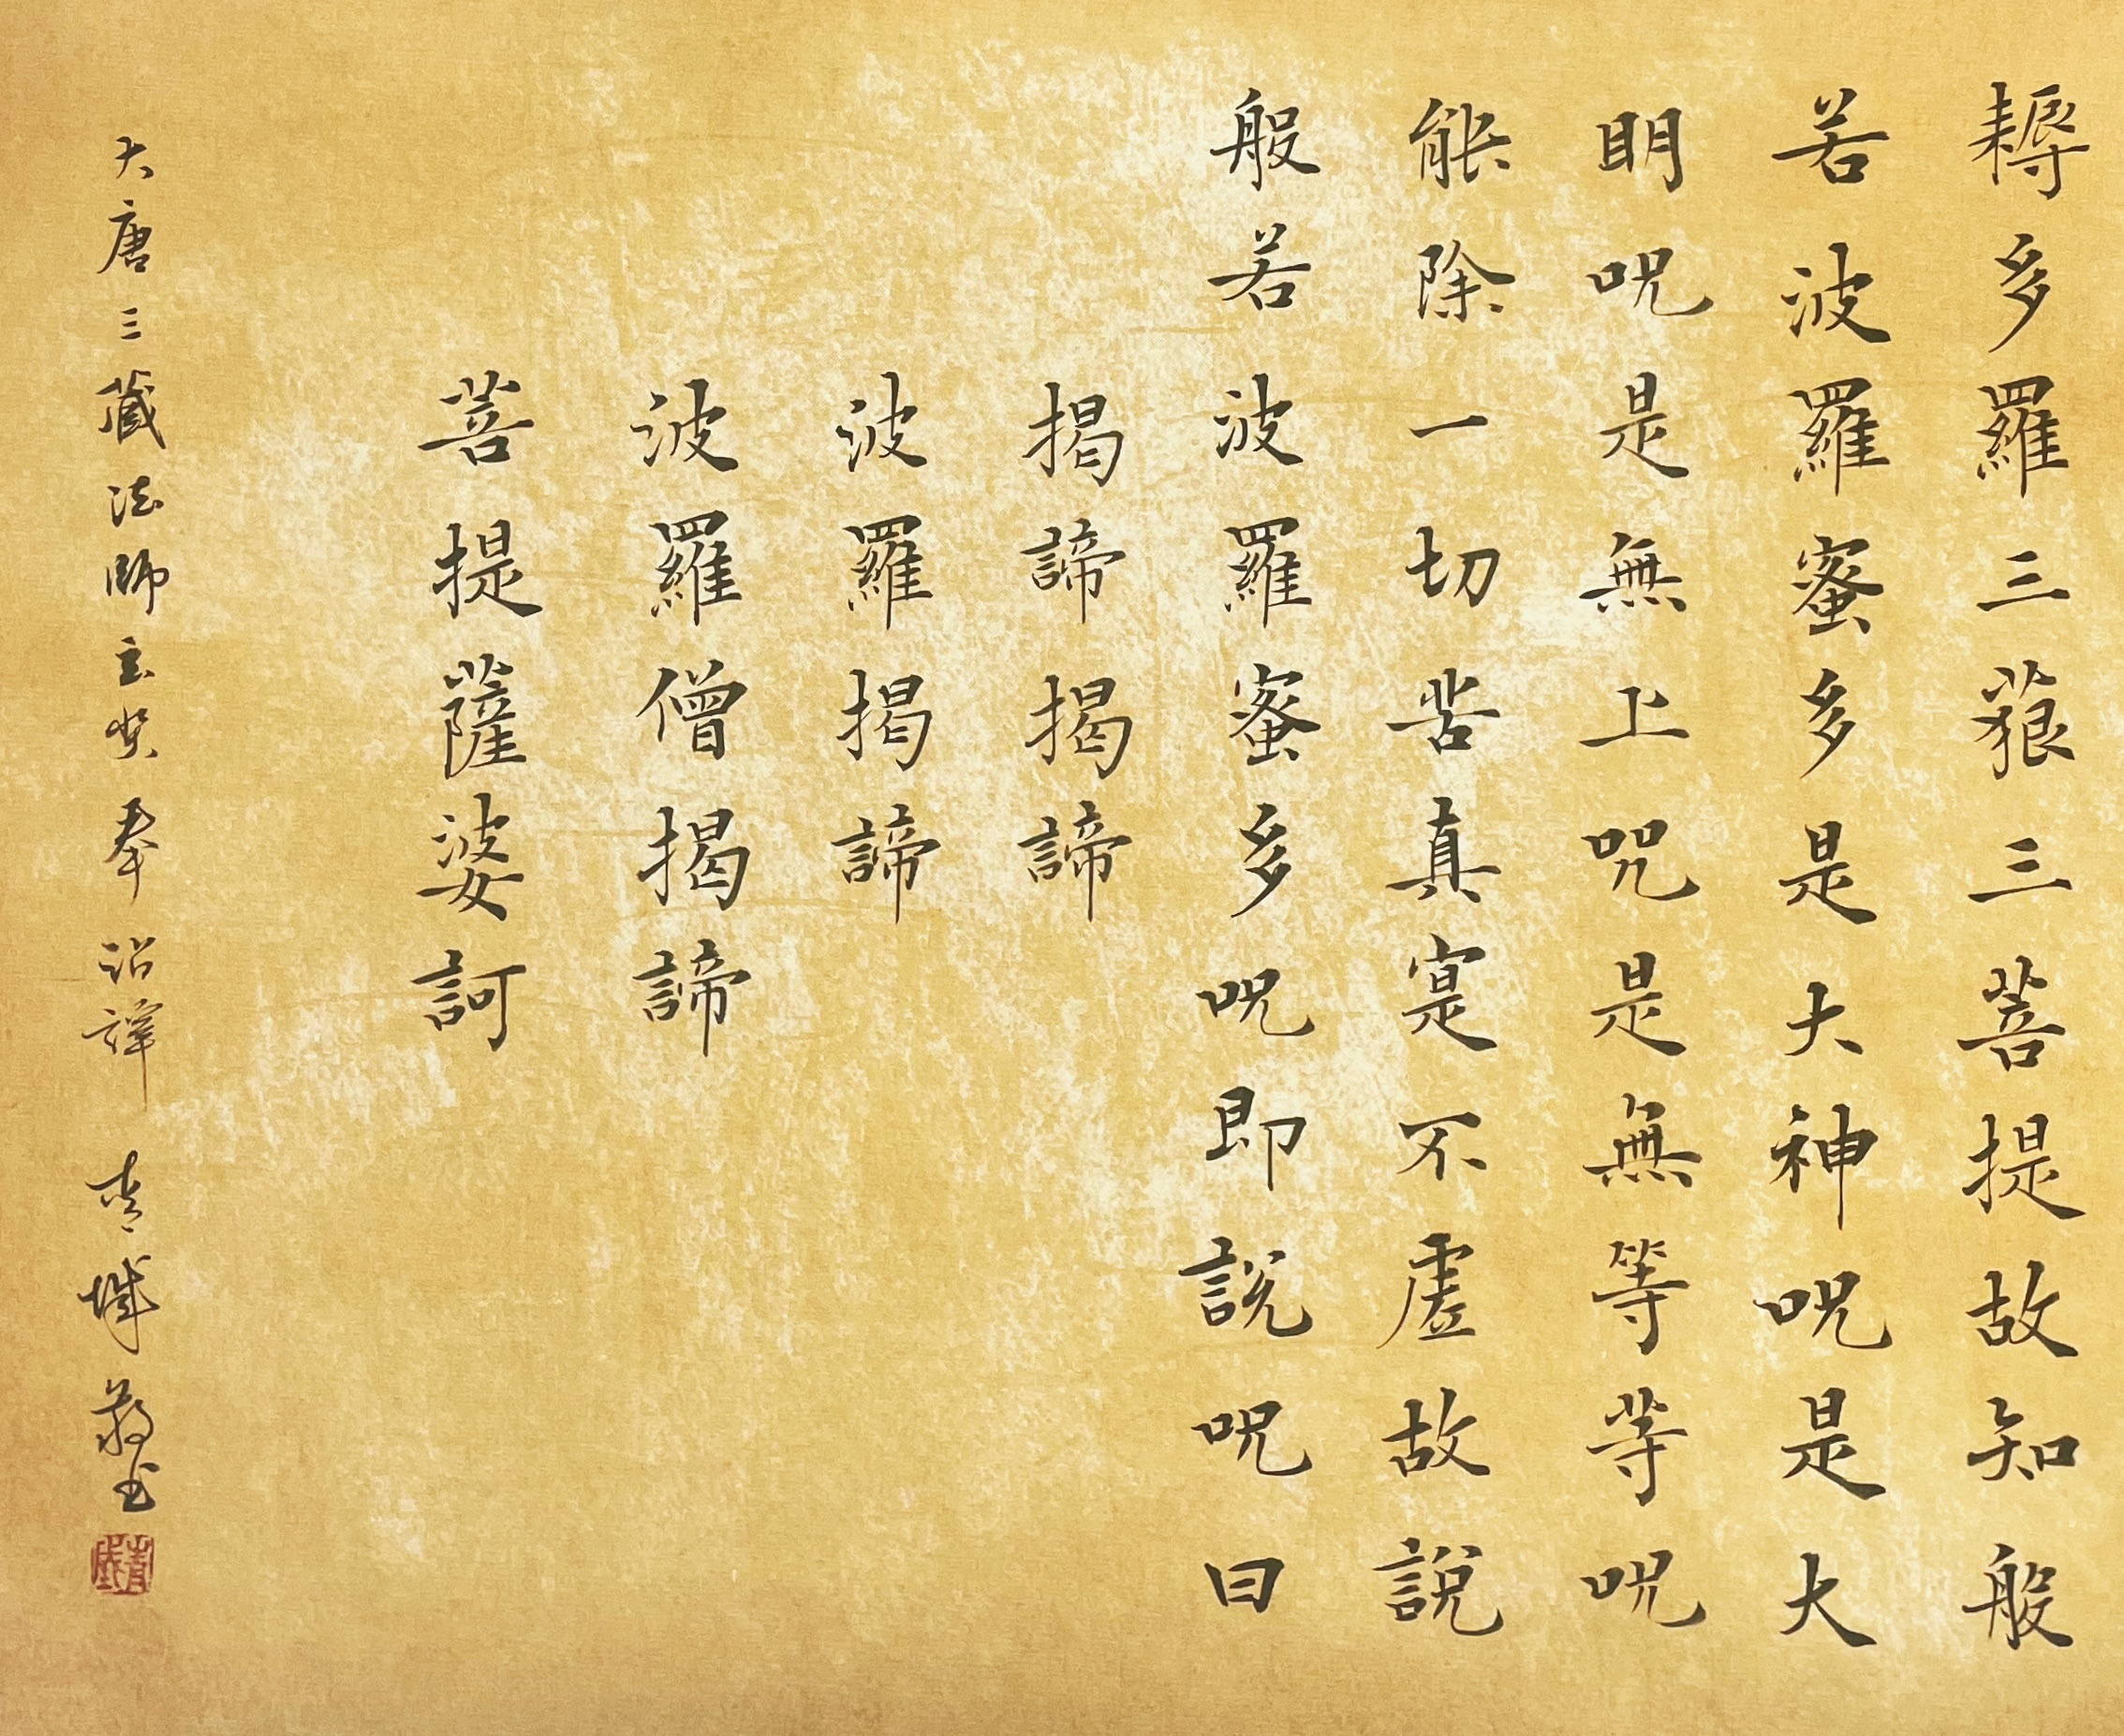 耨多羅三藐三菩提故知般
若波羅蜜多是大神呪是大
眀呪是無上咒是無等等呪
能除一切苦真寔不虛故說
般若波羅蜜多呪即說呪曰
揭諦揭諦
波羅揭諦
波羅僧揭諦
菩提薩婆訶
大唐三藏法師玄奘奉詔譯 青城敬书
青城